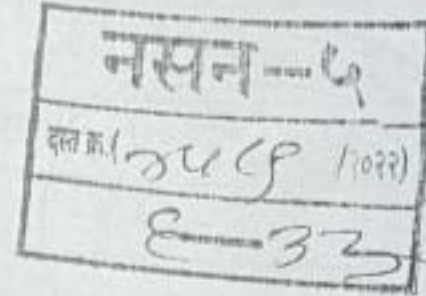 नसन--५
दस्त क्र.(२५८९ /२०२२)
६--33